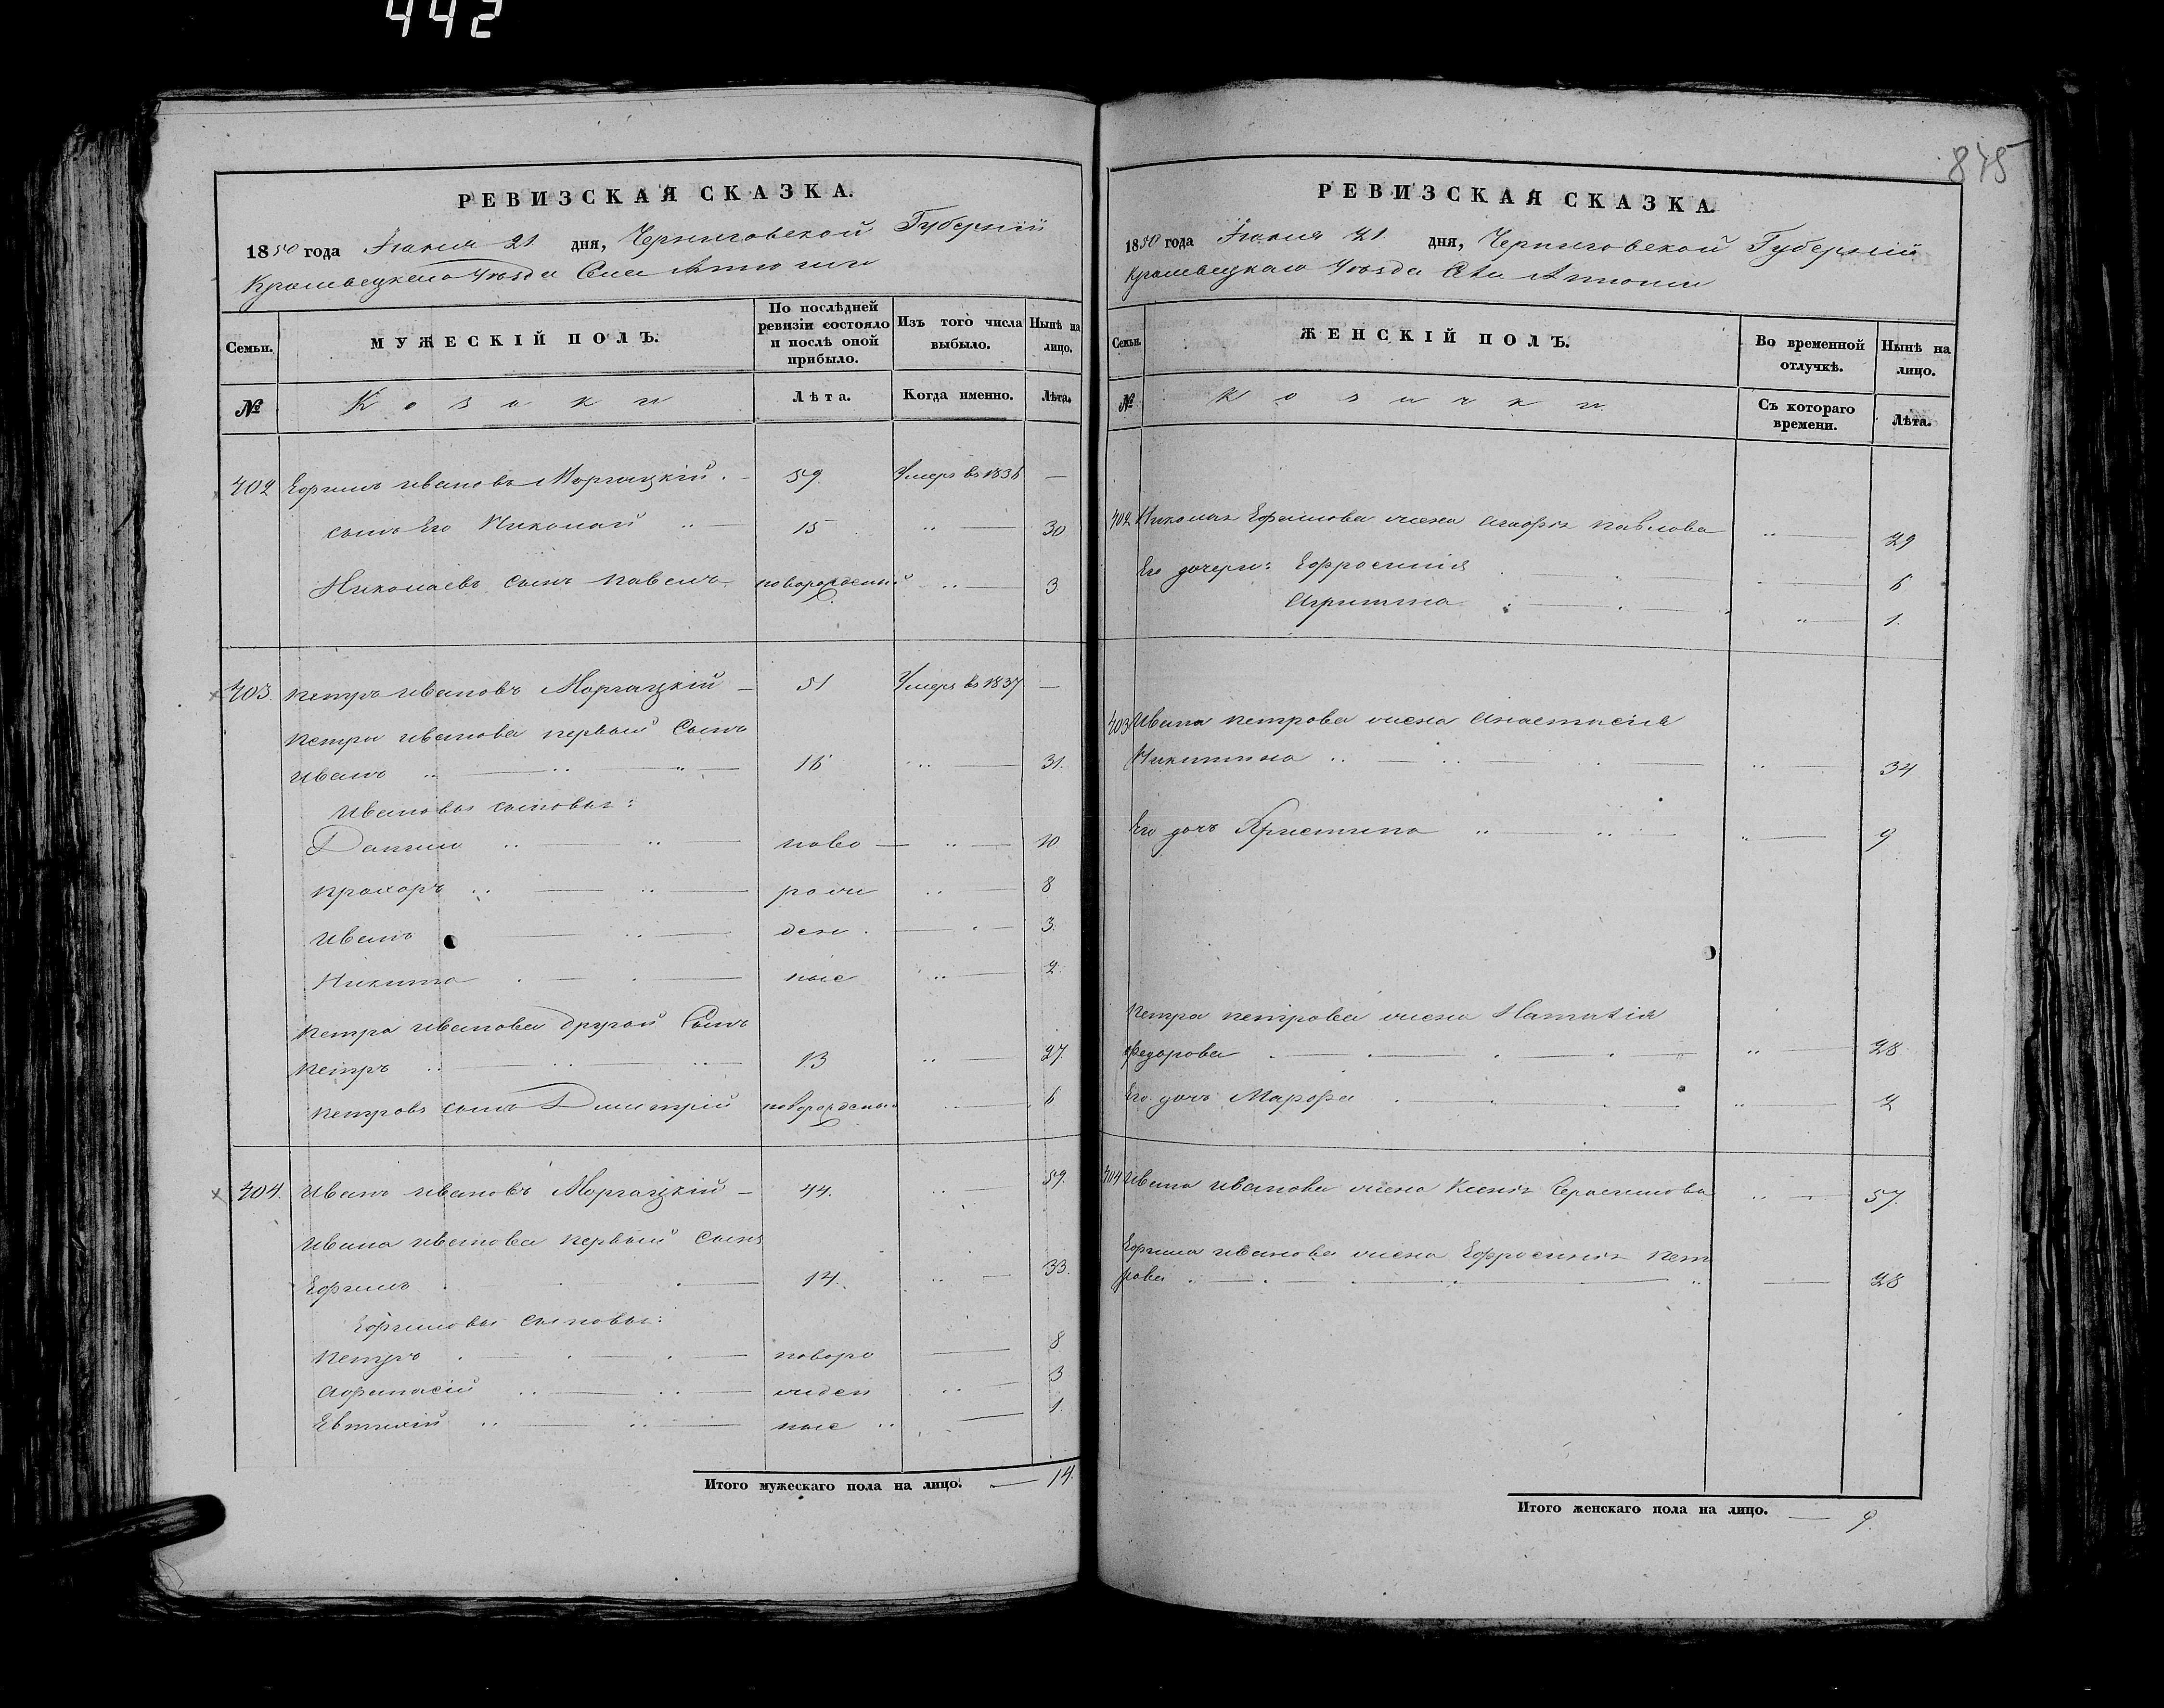 442
875
РЕВИЗСКАЯ СКАЗКА.
1850 года Іюния 21 дня, Черниговской Губерніи
Кролевецкого Уезда Села
Семьи.
МУЖЕСКІЙ ПОЛЪ.
По послѣдней ревизіи состояло и послѣ оной прибыло.
Изъ того числа выбыло.
Нынѣ на лицо.
№
Козаки
Лѣта.
Когда именно.
Лѣта.
402 Ефимъ Ивановъ Моргацкій. 59. Умеръ въ 1836 —
сынъ Его Николай 15 30
Николаевъ сынъ Павелъ новорожденный 3
403. Петръ Ивановъ Моргацкій 51 Умеръ въ 1837 —
Петра Иванова первый Сынъ
Иванъ 16 31.
Ивановы сыновья:
Данило ново 10
Прохоръ рож 8
Иванъ ден 3.
Никита ные 2
Петра Иванова другой Сынъ
Петръ 13 27.
Петровъ сынъ Димитрій новорожденный 6
404. Иванъ Ивановъ Моргацкій 44. 59.
Ивана Иванова первый Сынъ
Ефимъ 14. 33.
Ефимовы сыновья:
Петръ новоро 8
Афанасій жден 3
Евтихій ные 1.
Итого мужескаго пола на лицо. — 14.
РЕВИЗСКАЯ СКАЗКА.
1850 года Іюния 21. дня, Черниговской Губерніи
Кролевецкаго Уезда Села
Семьи.
ЖЕНСКІЙ ПОЛЪ.
Во временной отлучкѣ.
Нынѣ на лицо.
№
Козачки
Съ котораго времени.
Лѣта.
402 Николая Ефимова жена Агафія Павлова 29
Его дочери: Ефросинія 6
Агрипина 1.
403 Ивана Петрова жена Анастасія
Никитина 34
Его дочь Христина 9
Петра Петрова жена Наталія
Федорова 28
Его дочь Марфа 2
404 Ивана Иванова жена Ксенія Герасимова 57.
Ефима Иванова жена Ефросинія Пет
рова 28
Итого женскаго пола на лицо. — 9.